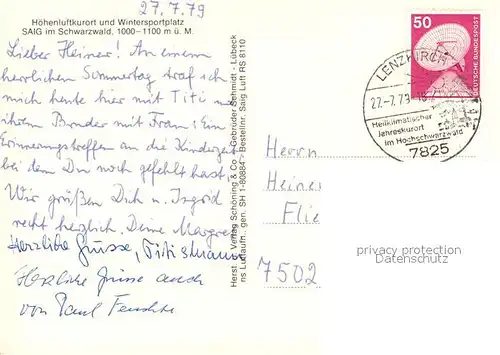 27.7.79
Höhenluftkurort und Wintersportplatz
SAIG im Schwarzwald, 1000-1100 m ü. M.
Lieber Heiner! An einem
herrlichen Sommertag traf ich
mich heute hier mit Titi und
ihrem Bruder mit Frau: Ein
Erinnerungstreffen an die Kinderzeit
bei dem Du noch gefehlt hast,
Wir grüßen Dich u. Ingrid
recht herzlich. Deine
Herzliche Grüsse,
Herzliche Grüsse auch
von Paul
Herst. u. Verlag Schöning & Co + Gebrüder Schmidt - Lübeck
ns Luftaufn. gen. SH 1-80884 Bestellnr. Saig Luft RS 8110
50
DEUTSCHE BUNDESPOST
LENZKIRCH
27.-7.79
Heilklimatischer
Jahreskurort
im Hochschwarzwald
7825
Herrn
Heine
Flie
7502
privacy protection
Datenschutz